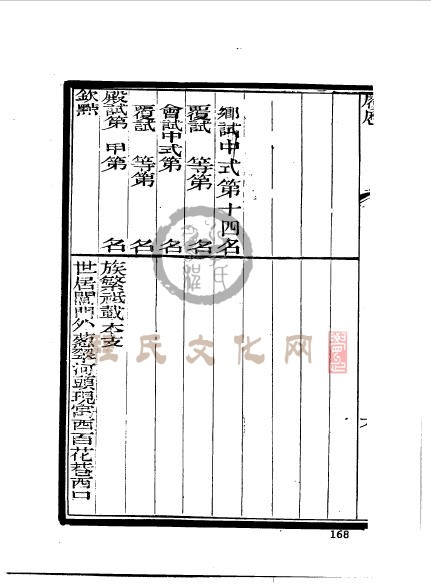 履歷
鄉試中式第十四名
覆試 等第 名
會試中式第 名
覆試 等第 名
殿試第 甲第 名
欽點
族繁祗載本支
世居閶門外 河頭現寓西百花巷西口
氏文化网
168